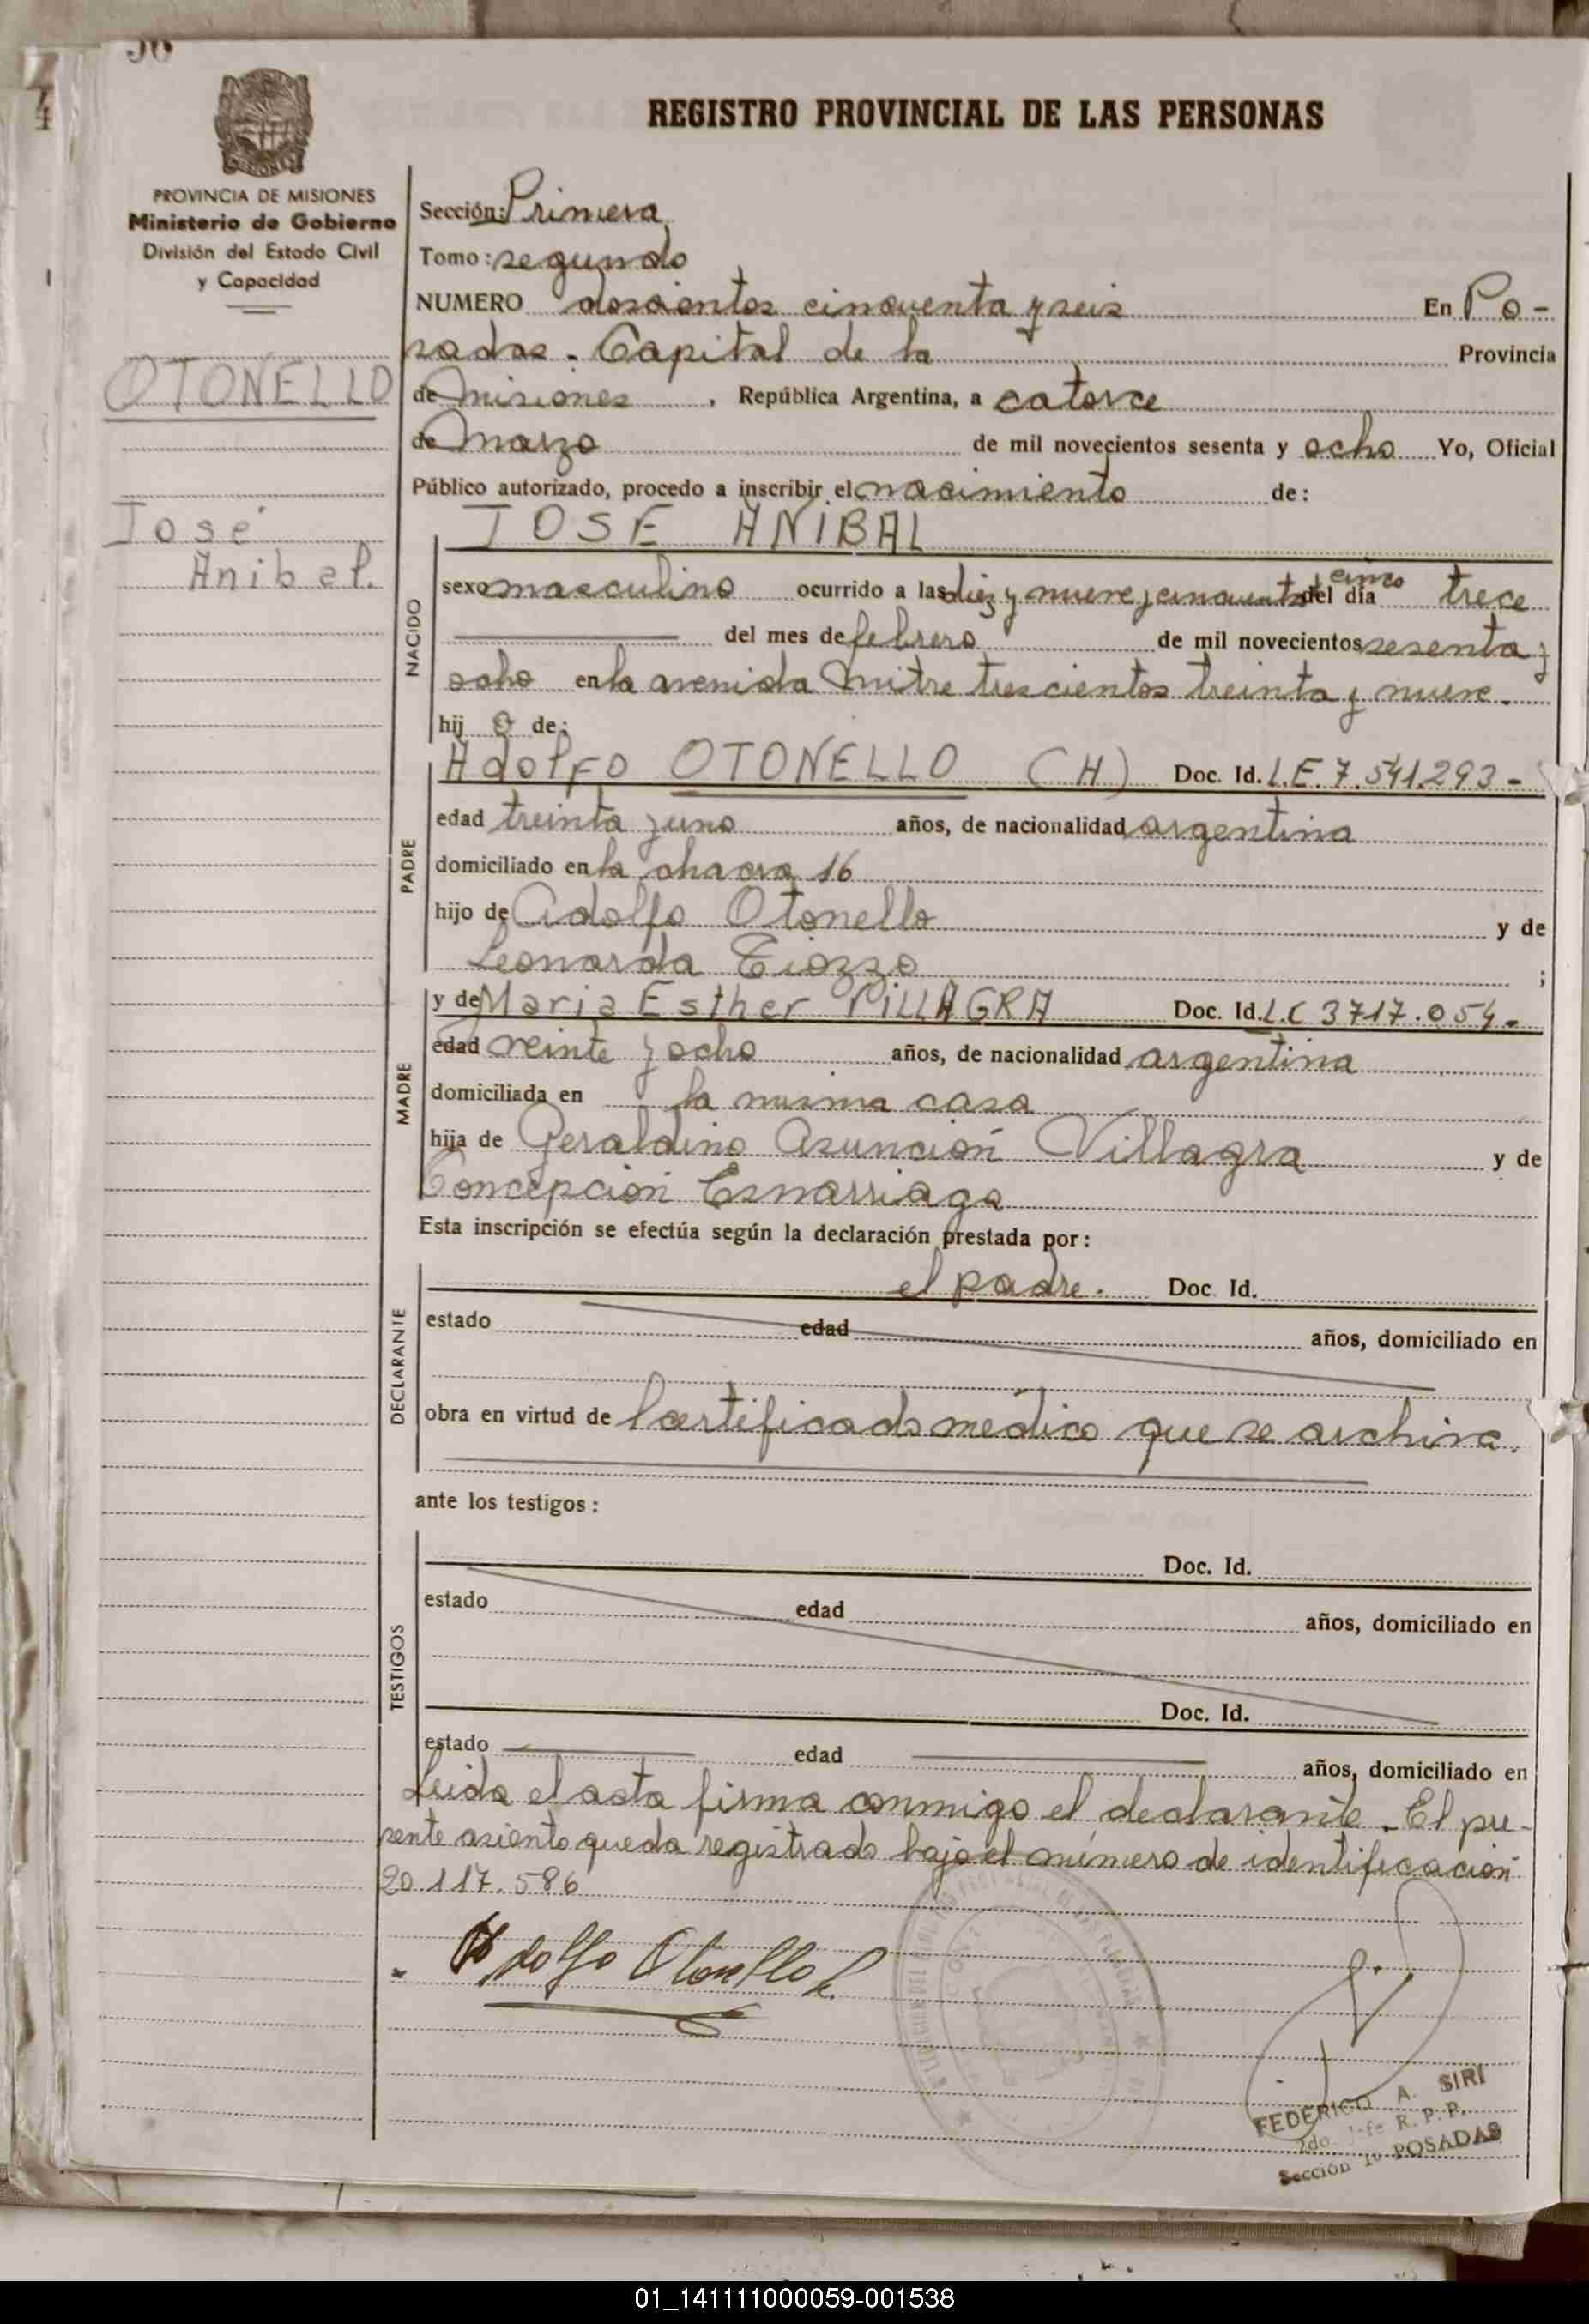 REGISTRO PROVINCIAL DE LAS PERSONAS
PROVINCIA DE MISIONES
Ministerio de Gobierno
División del Estado Civil
y Capacidad
OTONELLO
José
Anibal.
Sección: Primera
Tomo: segundo
NUMERO doscientos cinquenta y seis En Po-
sadas. Capital de la Provincia
de Misiones, República Argentina, a catorce
de Marzo de mil novecientos sesenta y ocho Yo, Oficial
Público autorizado, procedo a inscribir el nacimiento de:
JOSE ANIBAL
NACIDO
sexo masculino ocurrido a las diez y nueve y cincuenta cinco del día trece
del mes de febrero de mil novecientos sesenta y
ocho en la avenida Mitre trescientos treinta y nueve.
hij o de:
PADRE
Adolfo OTONELLO (H) Doc. Id. L.E. 7.541.293-
edad treinta y uno años, de nacionalidad argentina
domiciliado en la chacra 16
hijo de Adolfo Otonello y de
Leonarda Tiozzo ;
MADRE
y de Maria Esther VILLAGRA Doc. Id. L.C 3717.054-
edad veinte y ocho años, de nacionalidad argentina
domiciliada en la misma casa
hija de Geraldino Asunción Villagra y de
Concepción Esnarriaga
Esta inscripción se efectúa según la declaración prestada por:
DECLARANTE
el padre. Doc. Id.
estado edad años, domiciliado en
obra en virtud de l certificado médico que se archiva.
ante los testigos:
TESTIGOS
Doc. Id.
estado edad años, domiciliado en
Doc. Id.
estado edad años, domiciliado en
Leida el acta firma conmigo el declarante. El pre-
sente asiento queda registrado bajo el número de identificación
20.117.586
Adolfo Otonello h.
FEDERICO A. SIRI
2do. Jefe R. P. P.
Sección 1º POSADAS
01_141111000059-001538